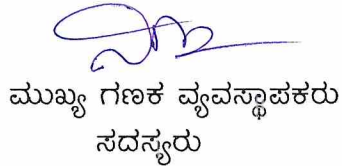 ಮುಖ್ಯ ಗಣಕ ವ್ಯವಸ್ಥಾಪಕರು
ಸದಸ್ಯರು